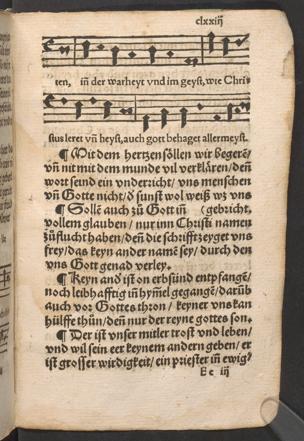 clxxiiȷ
ten, iñ der warheyt vnd im geyst, wie Chri⸗
stus leret vñ heyst, auch gott behaget allermeyst.
¶ Mit dem hertzen söllen wir begerẽ/
vñ nit mit dem munde vil verklären/ deñ
wort seind ein vnderricht/ vns menschen
vñ Gotte nicht/ ð sunst wol weiß wz vns
¶ Solle auch zů Gott iñ (gebricht,
vollem glauben/ nur inn Christi namen
zůflucht haben/ deñ die schrifft zeyget vns
frey/ das keyn ander namẽ sey/ durch den
vns Gott genad verley.
¶ Keyn anð ist on erbsünd entpfangẽ/
noch leibhafftig iñ hym̃el gegangẽ/ darũb
auch vor Gottes thron/ keyner vns kan
hülffe thůn/ deñ nur der reyne gottes son.
¶ Der ist vnser mitler trost vnd leben/
vnd wil sein eer keynem andern geben/ er
ist grosser wirdigkeit/ ein priester iñ ewig⸗
Ee iij